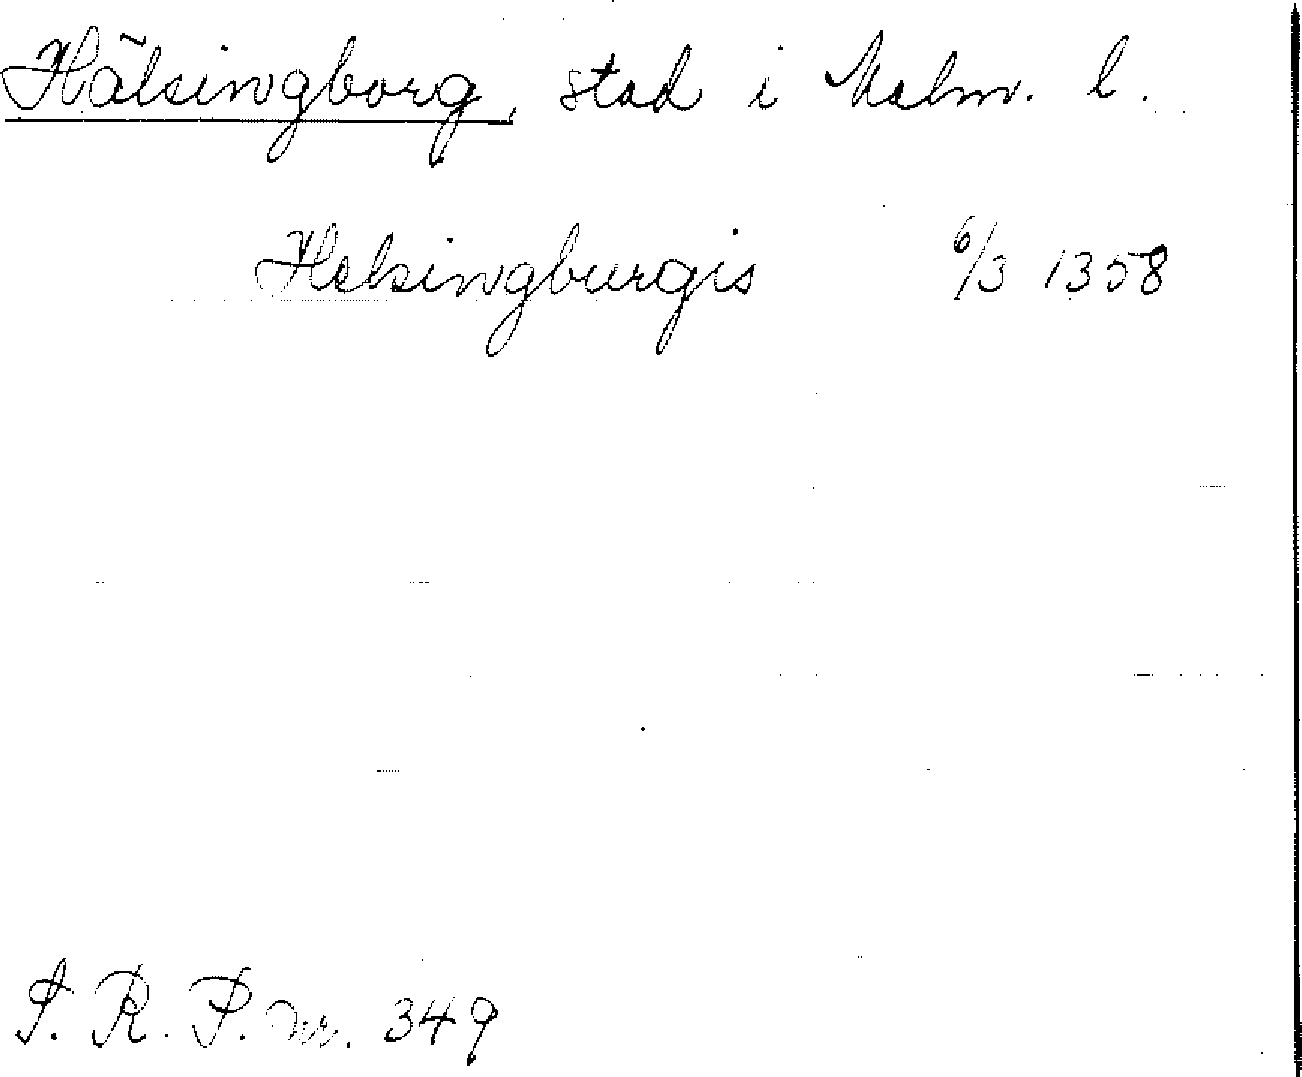 Hälsingborg, stad i Malm. l.
Helsingburgis 6/3 1358
S. R. P. nr. 349